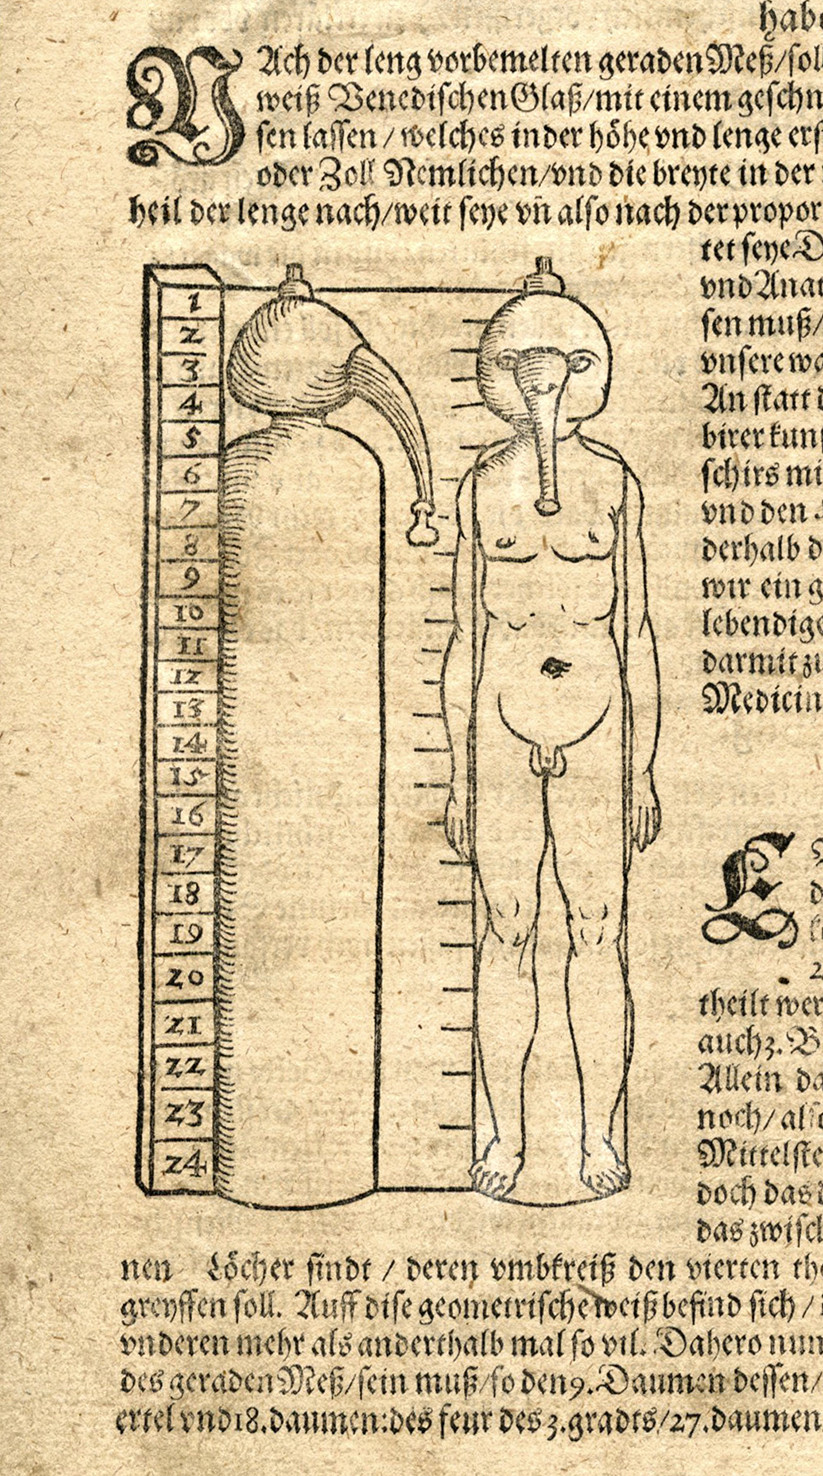 habe
NAch der leng vorbemelten geraden Meß/soll
weiß Venedischen Glaß/mit einem geschn
sen lassen / welches in der höhe vnd lenge erf
oder Zoll Nemlichen/vnd die breyte in der
heil der lenge nach/weit seye vñ also nach der propor
tet seye D
vnd Anat
sen muß/
vnsere wa
An statt d
birer kunf
schirs mi
vnd den
derhalb d
wir ein g
lebendige
darmit zu
Medicin
1
2
3
4
5
6
7
8
9
10
11
12
13
14
15
16
17
18
19
20
21
22
23
24
E
2
theilt wer
auch 3. B
Allein da
noch/also
Mittelste
doch das
das zwisch
nen Löcher sindt / deren vmbkreiß den vierten the
greyffen soll. Auff dise geometrische weiß befind sich /
vnderen mehr als anderthalb mal so vil. Dahero nun
des geraden Meß/sein muß/so den 9. Daumen dessen/
ertel vnd 18. daumen: des feur des 3. gradts/27. daumen